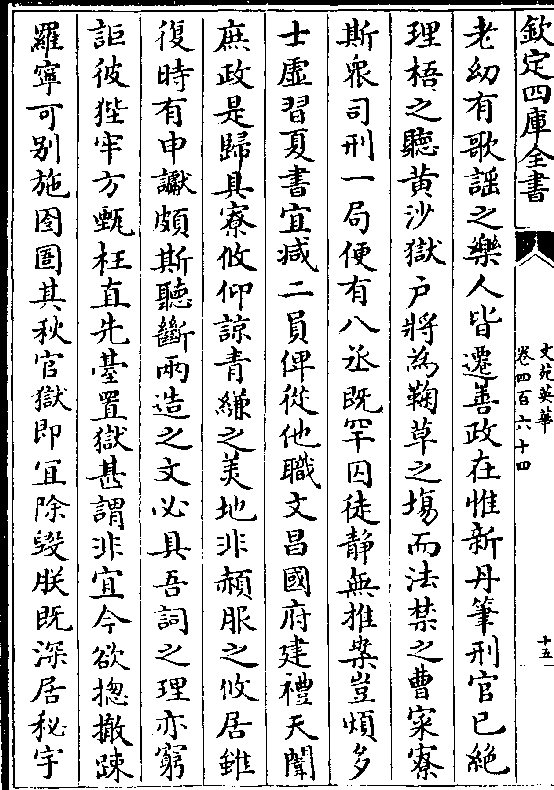 欽定四庫全書
文苑英華
卷四百六十四
十五
老幼有歌謡之樂人皆遷善政在惟新丹筆刑官已絶
理梧之聽黄沙獄戸將為鞠草之塲而法禁之曹寀寮
斯衆司刑一局便有八丞既罕囚徒静無推案豈煩多
士虚習夏書宜减二員俾從他職文昌國府建禮天闈
庶政是歸具寮攸仰諒青縑之美地非赬服之攸居雖
復時有申讞頗斯聽斷兩造之文必具吾詞之理亦窮
詎彼狴牢方甄枉直先臺置獄甚謂非宜今欲揔撤踈
羅寧可别施圄圉其秋官獄即宜除毁朕既深居秘宇